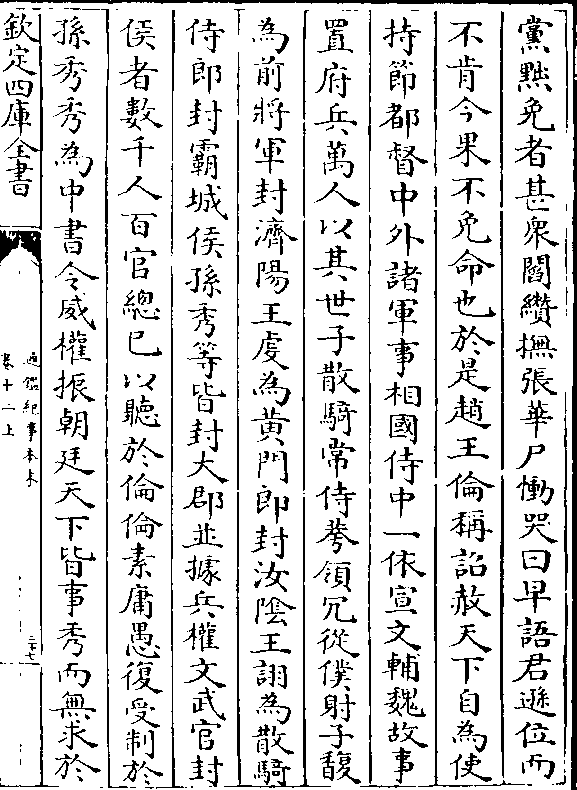 黨黜免者甚衆閻纘撫張華尸慟哭曰早語君遜位而
不肯今果不免命也於是趙王倫稱詔赦天下自為使
持節都督中外諸軍事相國侍中一依宣文輔魏故事
置府兵萬人以其世子散騎常侍荂領冗從僕射子馥
為前將軍封濟陽王虔為黄門郎封汝陰王詡為散騎
侍郎封霸城侯孫秀等皆封大郡並據兵權文武官封
侯者數千人百官總已以聽於倫倫素庸愚復受制於
孫秀秀為中書令威權振朝廷天下皆事秀而無求於
欽定四庫全書
通鑑紀事本末
卷十二上
三十七